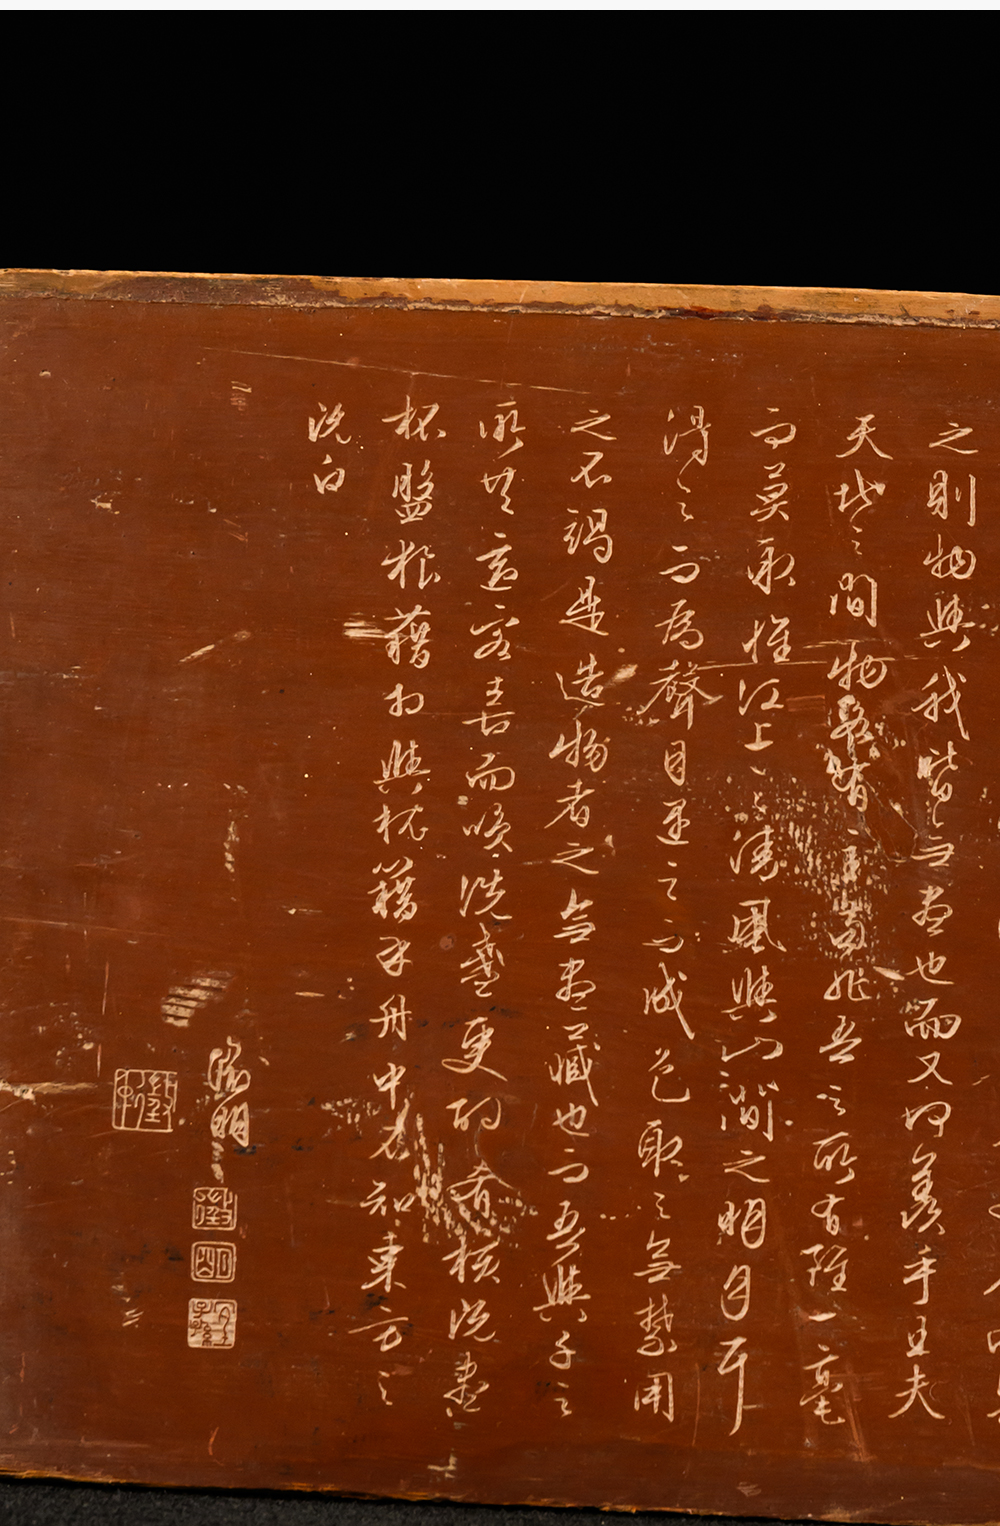 之則物與我皆無盡也而又何羨乎且夫
天地之間物各有主苟非吾之所有雖一毫
而莫取惟江上之清風與山間之明月耳
得之而為聲目遇之而成色取之無禁用
之不竭是造物者之無盡藏也而吾與子之
所共適客喜而笑洗盞更酌肴核既盡
杯盤狼藉相與枕籍乎舟中不知東方之
既白
徵明
徵
明